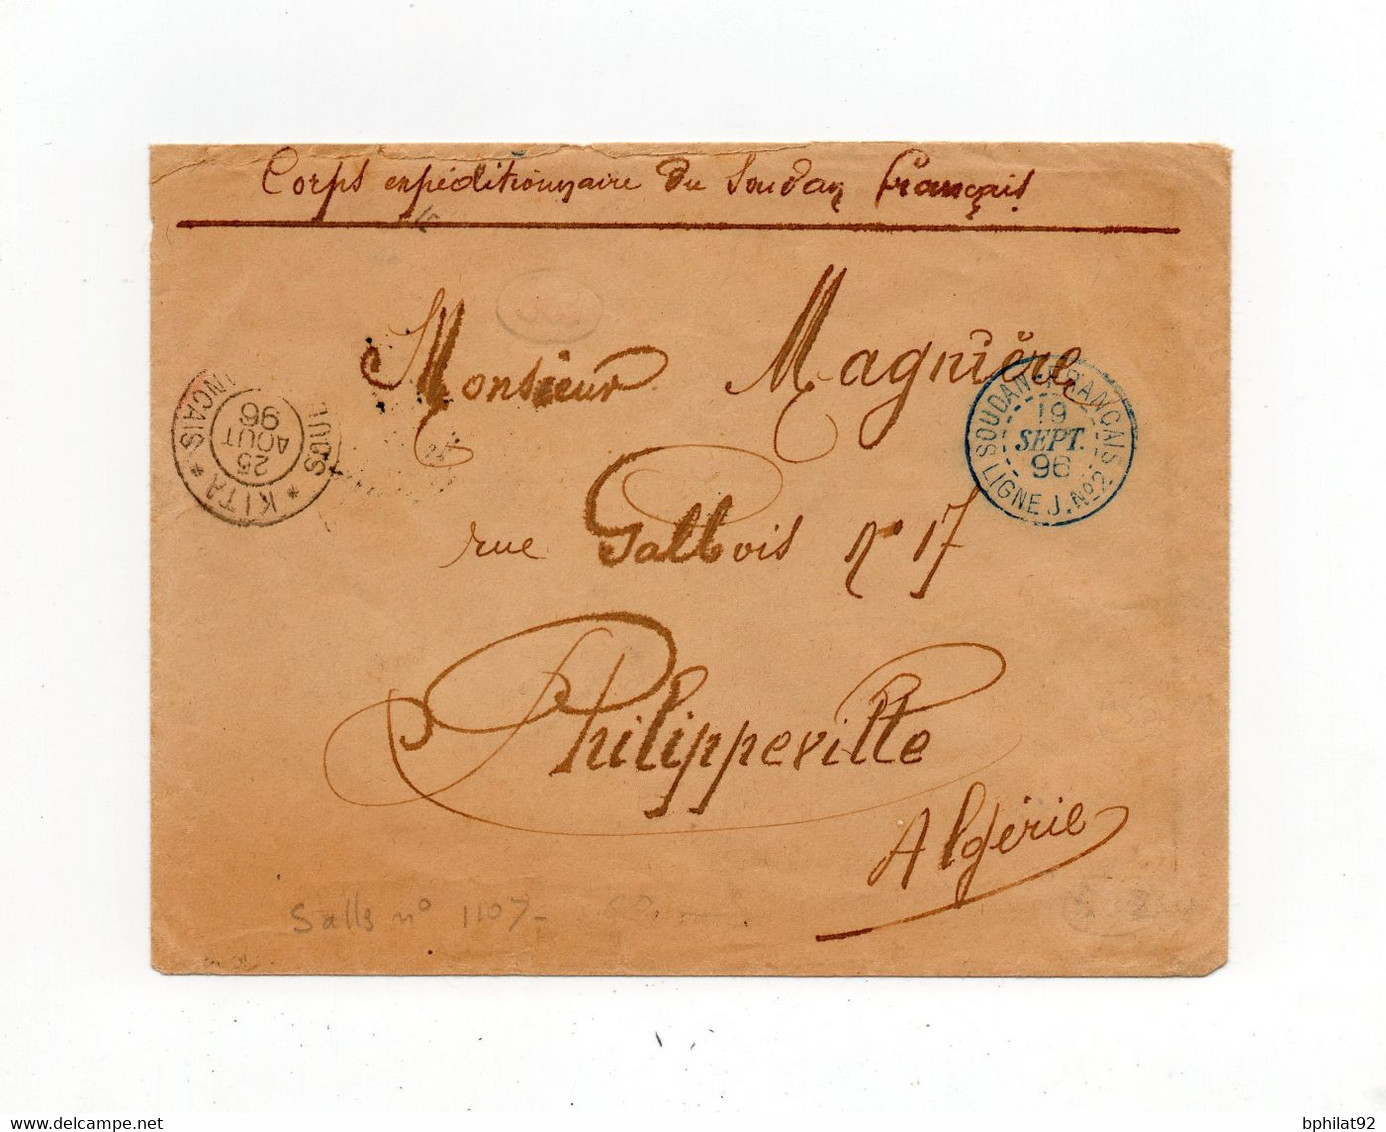 Corps expéditionnaire du Soudan Français
Monsieur Magnière
rue Galbois n° 17
Philippeville
Algérie
SOUDAN-FRANCAIS
19
SEPT.
96
LIGNE J. Nº2
* KITA *
25
AOUT
96
Salls n° 1107-
delcampe.net
bphilat92